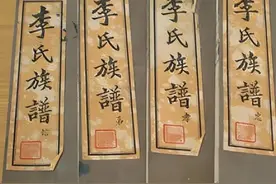 李氏族譜
李氏族譜
李氏族譜
李氏族譜